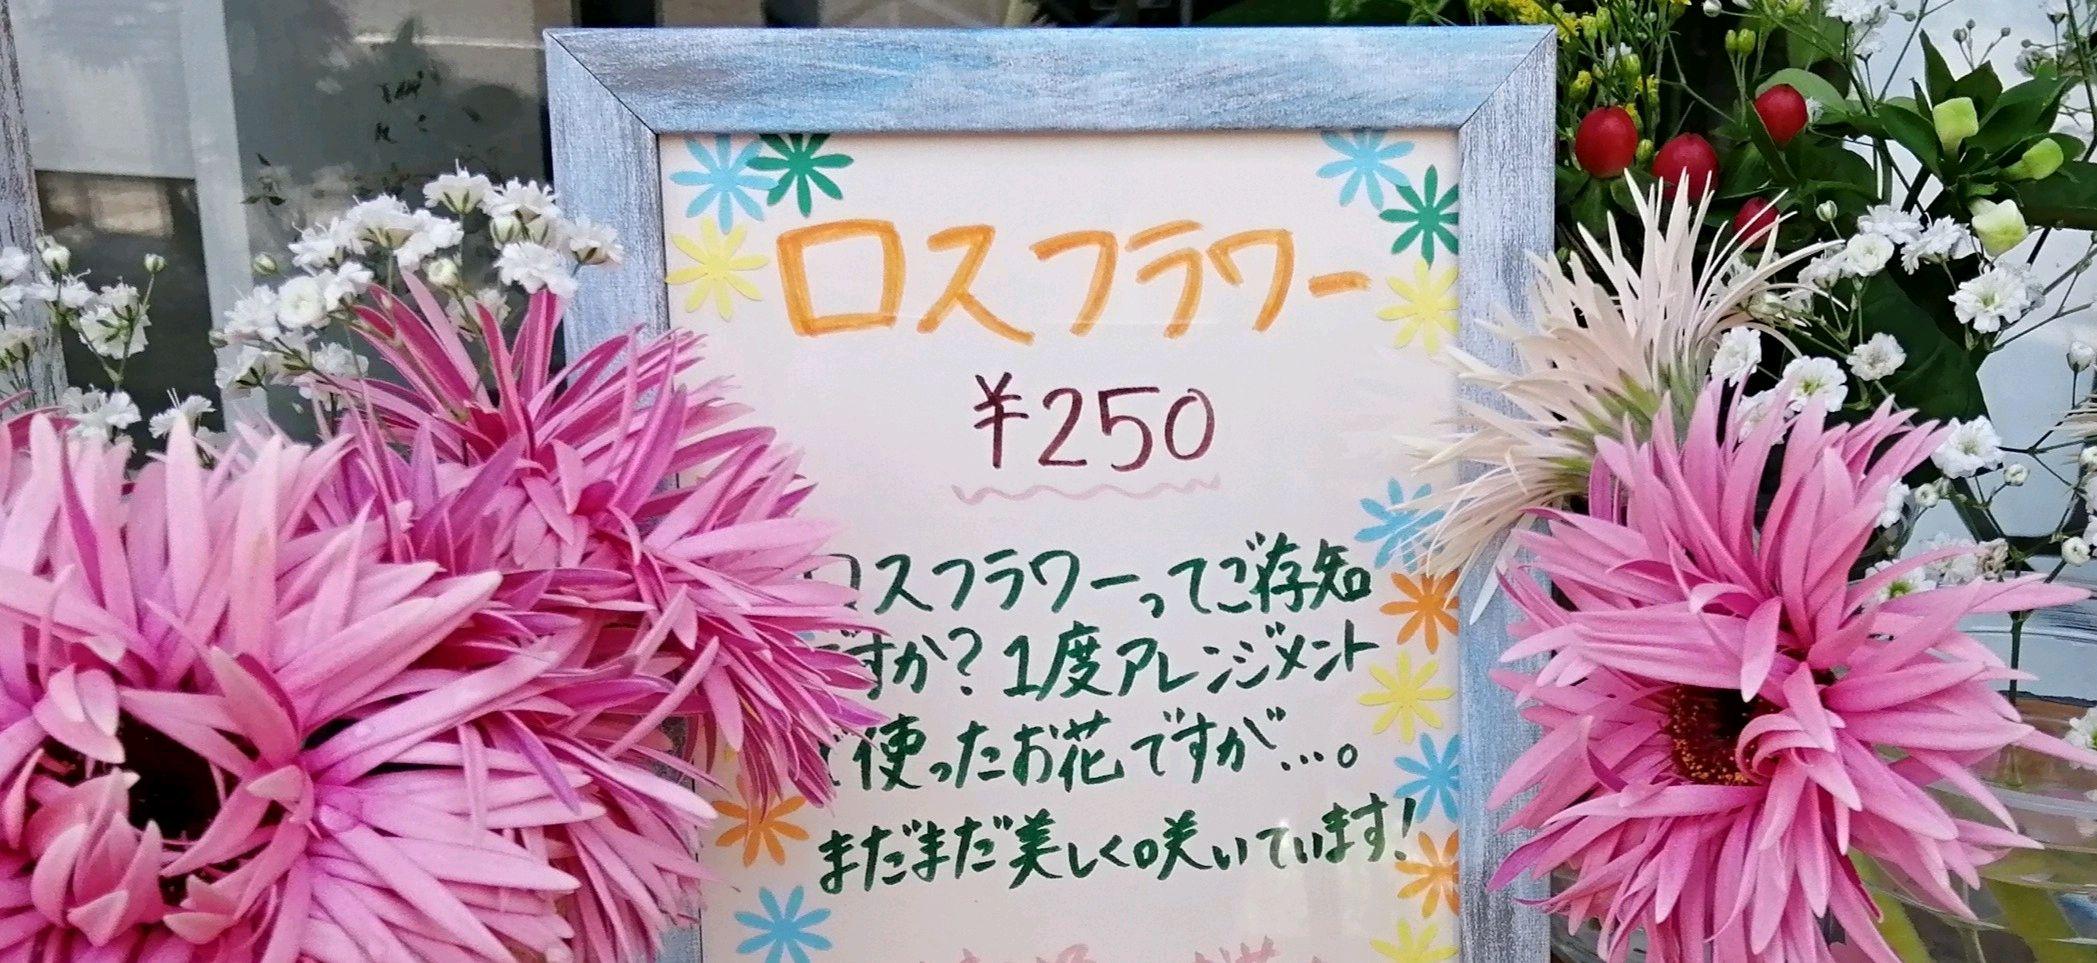 ロスフラワー
¥250
ロスフラワーってご存知
ですか？1度アレンジメント
で使ったお花ですが…。
まだまだ美しく咲いています！